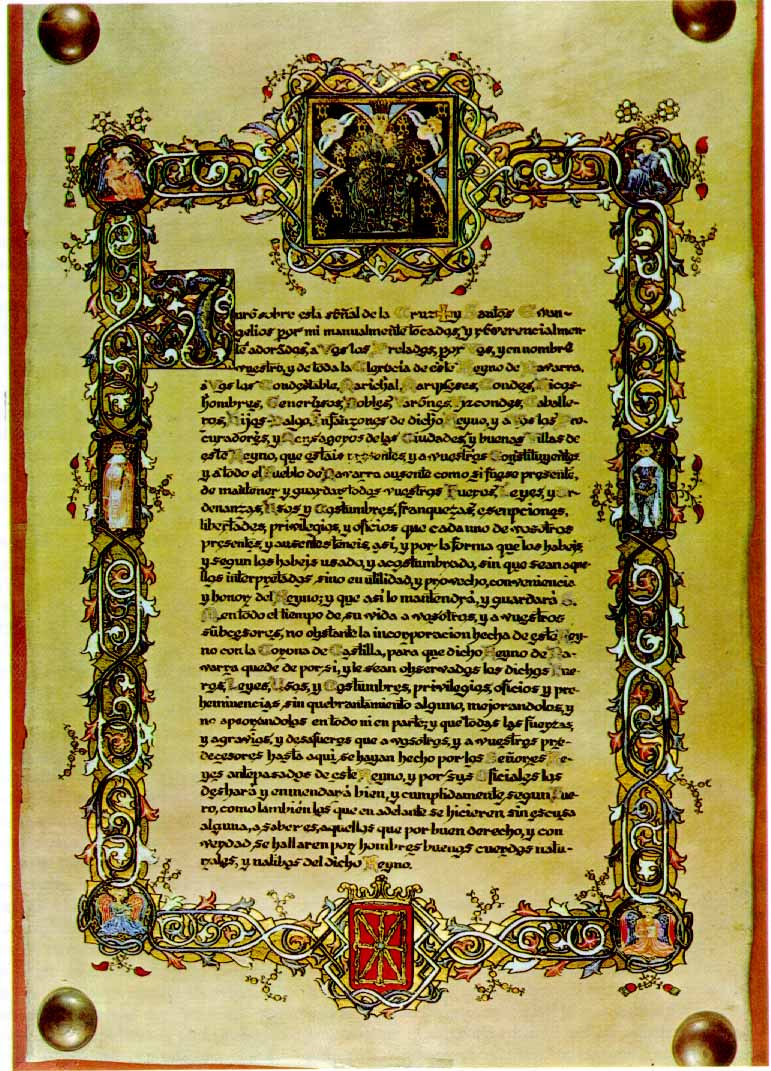 Juro sobre esta señal de la Cruz ✝ y Santos Evan-
gelios por mi manualmente tocados, y reverencialmen-
te adorados, a Vos los Prelados, por Vos, y en nombre
vuestro, y de toda la Clerecia de este Reyno de Navarra,
a Vos las Condestable, Marichal, Marqueses, Condes, Ricos-
hombres, Generosos, Nobles, Varones, Vizcondes, Caballe-
ros, Hijos-Dalgo, Infanzones de dicho Reyno, y a Vos los Pro-
curadores, y Mensageros de las Ciudades, y buenas Villas de
este Reyno, que estais presentes, y a vuestros Constituyentes,
y a todo el Pueblo de Navarra ausente como si fuese presente,
de mantener y guardar todos vuestros Fueros, Leyes, y Or-
denanzas, Usos y Costumbres, franquezas, esenpciones,
libertades, privilegios, y oficios que cada uno de vosotros
presentes, y ausentes teneis, asi, y por la forma que los habeis,
y segun los habeis usado, y acostumbrado, sin que sean aque-
llos interpretados, sino en utilidad, y provecho, conveniencia
y honor del Reyno; y que asi lo mantendrá, y guardará S.
M. en todo el tiempo de su vida a vosotros, y a vuestros
subcesores, no obstante la incorporacion hecha de este Rey-
no con la Corona de Castilla, para que dicho Reyno de Na-
varra quede de por si, y le sean observados los dichos Fue-
ros, Leyes, Usos, y Costumbres, privilegios, oficios y pre-
heminencias, sin quebrantamiento alguno, mejorandolos, y
no apeorandolos en todo ni en parte; y que todas las fuerzas,
y agravios, y desafueros que a vosotros, y a vuestros pre-
decesores hasta aqui se hayan hecho por los Señores Re-
yes antepasados de este Reyno, y por sus Oficiales los
deshará y enmendará bien, y cumplidamente segun Fue-
ro, como también los que en adelante se hicieren sin escusa
alguna, a saber es, aquellos que por buen derecho, y con
verdad se hallaren por hombres buenos cuerdos natu-
rales, y natibos del dicho Reyno.